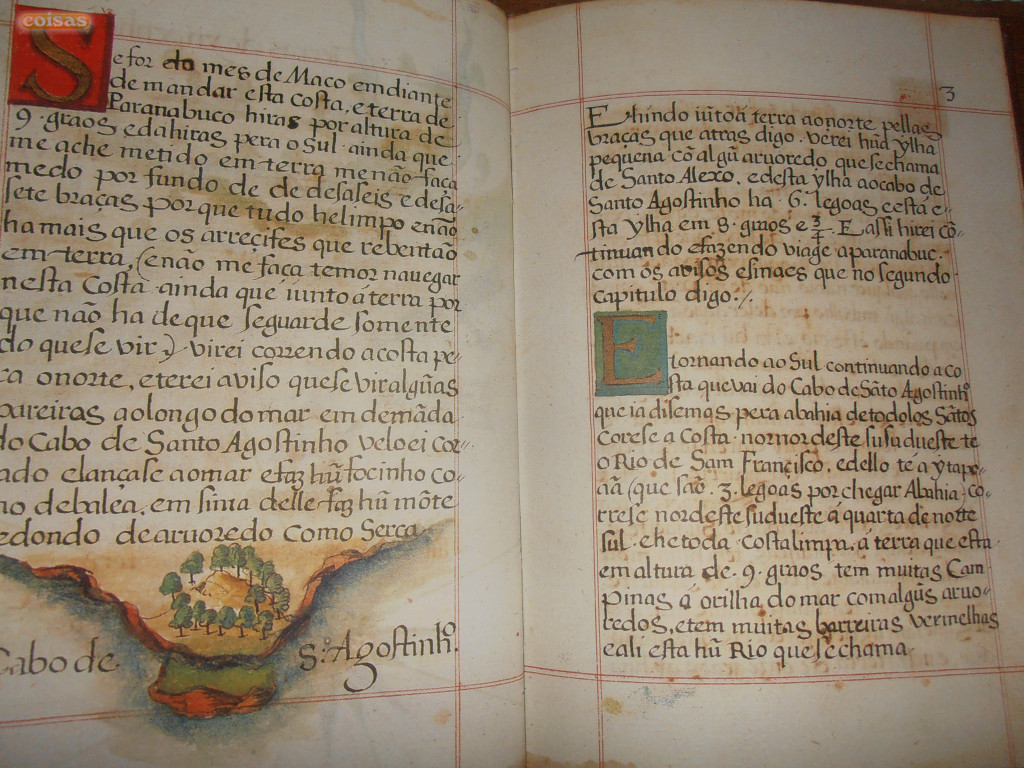 coisas
Se for do mes de Maço em diante
de mandar esta costa, e terra de
Paranabuco hiras por altura de
9. graos e dahiras pera o Sul. ainda que
me ache metido em terra me não faça
medo por fundo de de desaseis e desa-
sete braças por que tudo he limpo e não
ha mais que os arreçifes que rebentão
em terra, (e não me faça temor navegar
nesta Costa. ainda que iunto á terra por
que não ha de que se guarde somente
do que se vir.) virei correndo a costa pe-
ra o norte, e terei aviso que se vir algũas
bareiras ao longo do mar em demãda
do Cabo de Santo Agostinho veloei cor-
ado e lançase ao mar e faz hũ focinho co-
mo de balea, em sima delle faz hũ mõte
redondo de aruoredo como Serca.
Cabo de S.to Agostinh.o
3
E hindo iũto á terra ao norte pellas
braças que atras digo. verei hũa ylha
pequena cõ algũ aruoredo que se chama
de Santo Alexo. e desta ylha ao cabo de
Santo Agostinho ha .6. legoas e está e-
sta ylha em 8. graos e 3/4. E assi hirei cõ-
tinuando e fazendo viage a paranabuc.o
com os avisos e sinaes que no segundo
capitulo digo:/.
E tornando ao Sul continuando a co-
sta que vai do Cabo de Sãto Agostinh.o
que ia disemos pera abahia de todolos Sãtos
Corese a Costa. nornordeste susudueste te
o Rio de Sam Françisco. e dello té a ytapo-
aã (que são .3. legoas por chegar A bahia) co-
rrese nordeste sudueste á quarta de norte
sul. e he toda costa limpa. á terra que esta
em altura de .9. graos tem muitas Cam
pinas á orilha do mar com algũs aruo-
redos, e tem muitas barreiras vermelhas
e ali esta hũ Rio que se chama